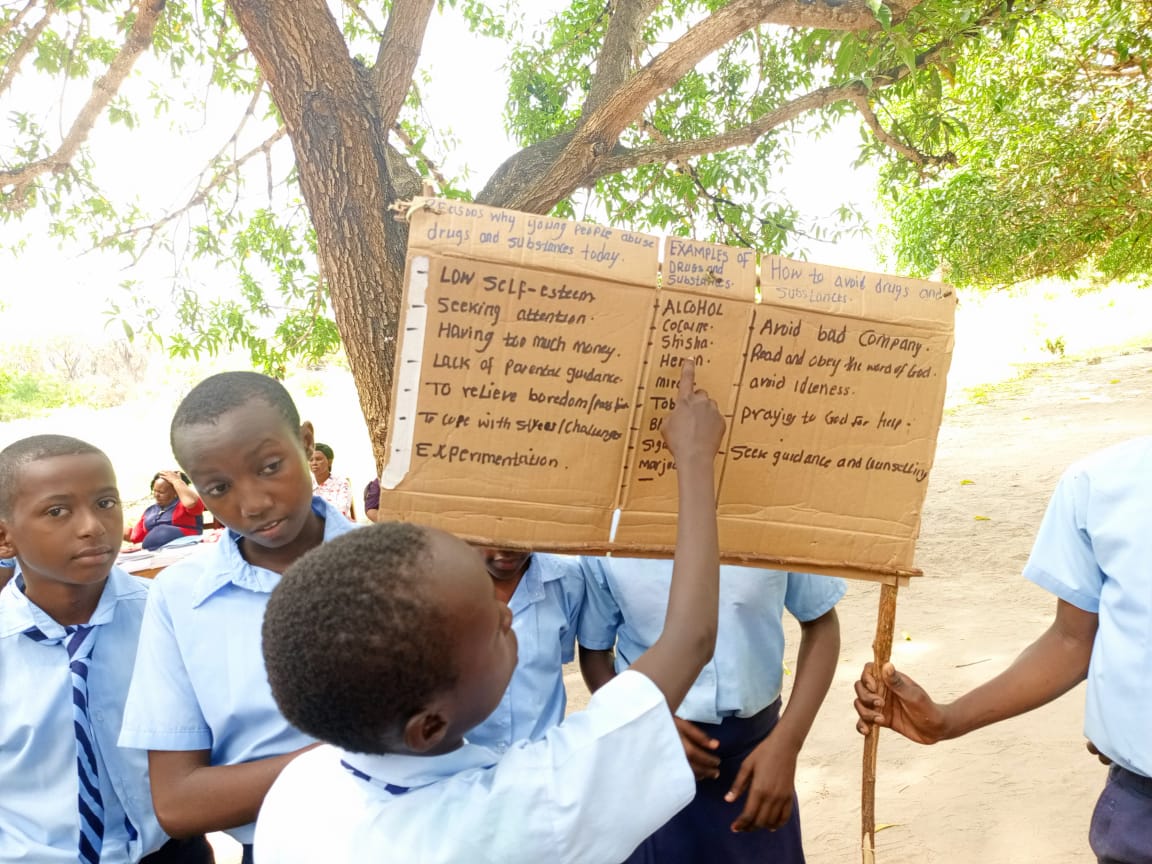 Reasons why young people abuse
drugs and substances today.
LOW SELF-esteem
Seeking attention.
Having too much money.
Lack of parental guidance.
TO relieve boredom/
To cope with /Challenges
EXPerimentation.
EXAMPLES OF
Drugs and
Substances.
ALCOHOL
Cocaine.
Shisha.
How to avoid drugs and
Substances.
Avoid bad Company.
Read and obey the word of God.
avoid Idleness.
praying to God for help.
Seek guidance and Counselling